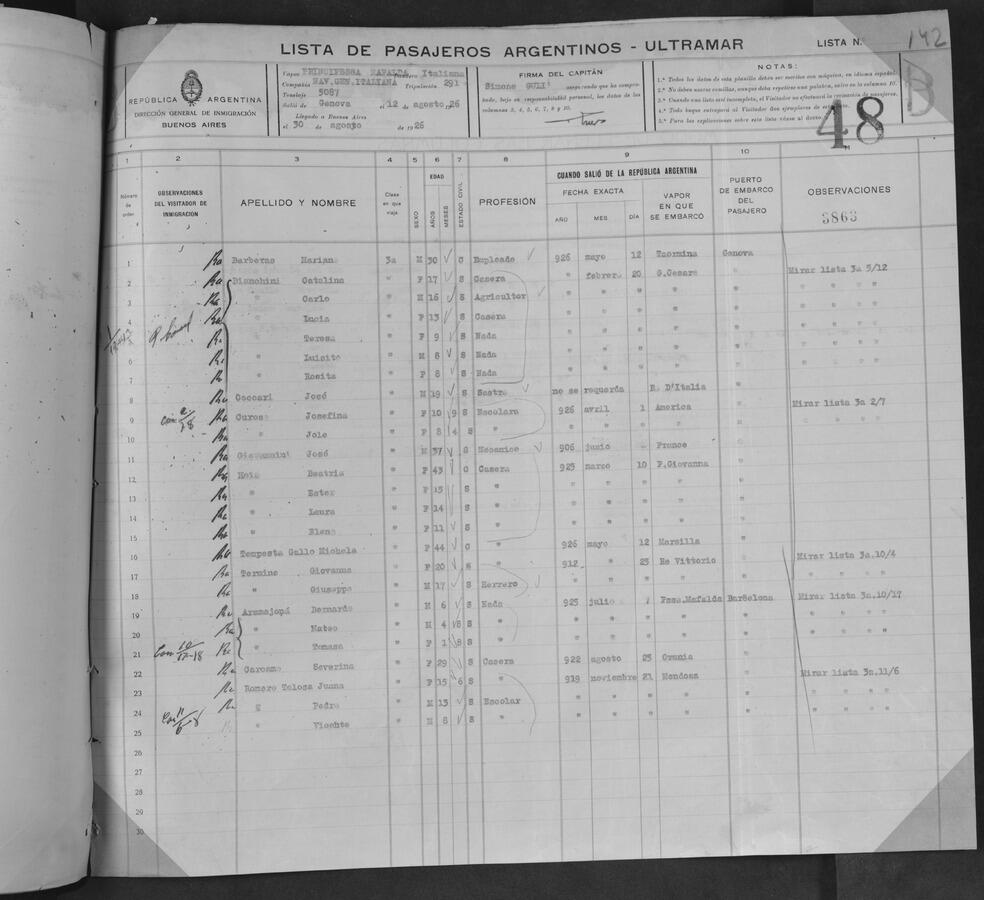 LISTA DE PASAJEROS ARGENTINOS - ULTRAMAR LISTA N.° 142
REPÚBLICA ARGENTINA
DIRECCIÓN GENERAL DE INMIGRACIÓN
BUENOS AIRES
Vapor PRINCIPESSA MAFALDA Bandera Italiana
Compañía NAV.GEN.ITALIANA Tripulación 291
Tonelaje 5087
Salió de Genova el 12 agosto 26
Llegado a Buenos Aires
el 30 de agosto de 1926
FIRMA DEL CAPITÁN
Simone GULI' asegurando que ha compro-
bado, bajo su responsabilidad personal, los datos de las
columnas 3, 4, 5, 6, 7, 8 y 10.
NOTAS:
1.° Todos los datos de esta planilla deben ser escritos con máquina, en idioma español.
2.° No deben usarse comillas, aunque deba repetirse una palabra, salvo en la columna 10.
3.° Cuando una lista sea incompleta, el Visitador no efectuará la
4.° Todo buque entregará al Visitador dos ejemplares de
5.° Para las explicaciones sobre esta lista véase al dorso.
B
48
1 2 3 4 5 6 7 8 9 10 11
Número de orden
OBSERVACIONES DEL VISITADOR DE INMIGRACIÓN
APELLIDO Y NOMBRE
Clase en que viaja
SEXO
EDAD
AÑOS
MESES
ESTADO CIVIL
PROFESIÓN
CUANDO SALIÓ DE LA REPÚBLICA ARGENTINA
FECHA EXACTA
AÑO MES DÍA
VAPOR EN QUE SE EMBARCÓ
PUERTO DE EMBARCO DEL PASAJERO
OBSERVACIONES
3863
1 Ra Barberas Mariano 3a M 30 C Empleado 926 mayo 12 Taormina Genova
2 Ra Bianchini Catalina " F 17 S Casera " febrero 20 G.Cesare " Mirar lista 3a 5/12
3 Ra " Carlo " M 16 S Agricultor " " " " " " " " "
4 Ra " Lucia " F 13 S Casera " " " " " " " " "
5 Ra " Teresa " F 9 S Nada " " " " " " " " "
6 Ra " Luisito " M 8 S Nada " " " " " " " " "
7 Ra " Rosita " F 8 S Nada " " " " " " " " "
8 Ra Coccari José " M 19 S Sastre no se requerda R. D'Italia "
9 Ra Curosa Josefina " F 10 9 S Escolara 926 avril 1 America " Mirar lista 3a 2/7
10 Ra " Jole " F 8 4 S " " " " " " " " " "
11 Ra Giovannini José " M 37 C Mecanico 906 junio - France "
12 Ra Beatriz " F 43 C Casera 925 marzo 10 P.Giovanna "
13 Ra " Ester " F 15 S " " " " " "
14 Ra " Laura " F 14 S " " " " " "
15 Ra " Elena " F 11 S " " " " " "
16 Ra Tempesta Gallo Michela " F 44 C " 926 mayo 12 Marsilla "
17 Ra Termine Giovanna " F 20 S " 912 " 25 Re Vittorio " Mirar lista 3a.10/4
18 Ra " Giuseppe " M 17 S Herrero " " " " " " " " "
19 Ra Aramajopá Bernardo " M 6 S Nada 925 julio Pssa.Mafalda Barselona Mirar lista 3a.10/17
20 Ra " Mateo " M 4 8 S " " " " " " " " " "
21 Ra " Tomasa " F 1 8 S " " " " " " " " " "
22 Ra Severina " F 29 S Casera 922 agosto 25 "
23 Ra Romero Tolosa Juana " F 15 6 S " 919 noviembre 21 Mendosa " Mirar lista 3a.11/6
24 Ra " Pedro " M 13 S Escolar " " " " " " " " "
25 " Vicente " M 8 S " " " " " " " " " "
26
27
28
29
30